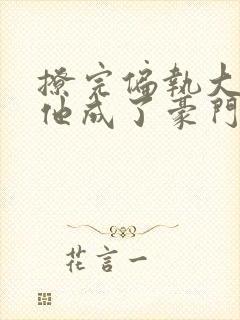 撩完偏執大
他成了豪門
花言一